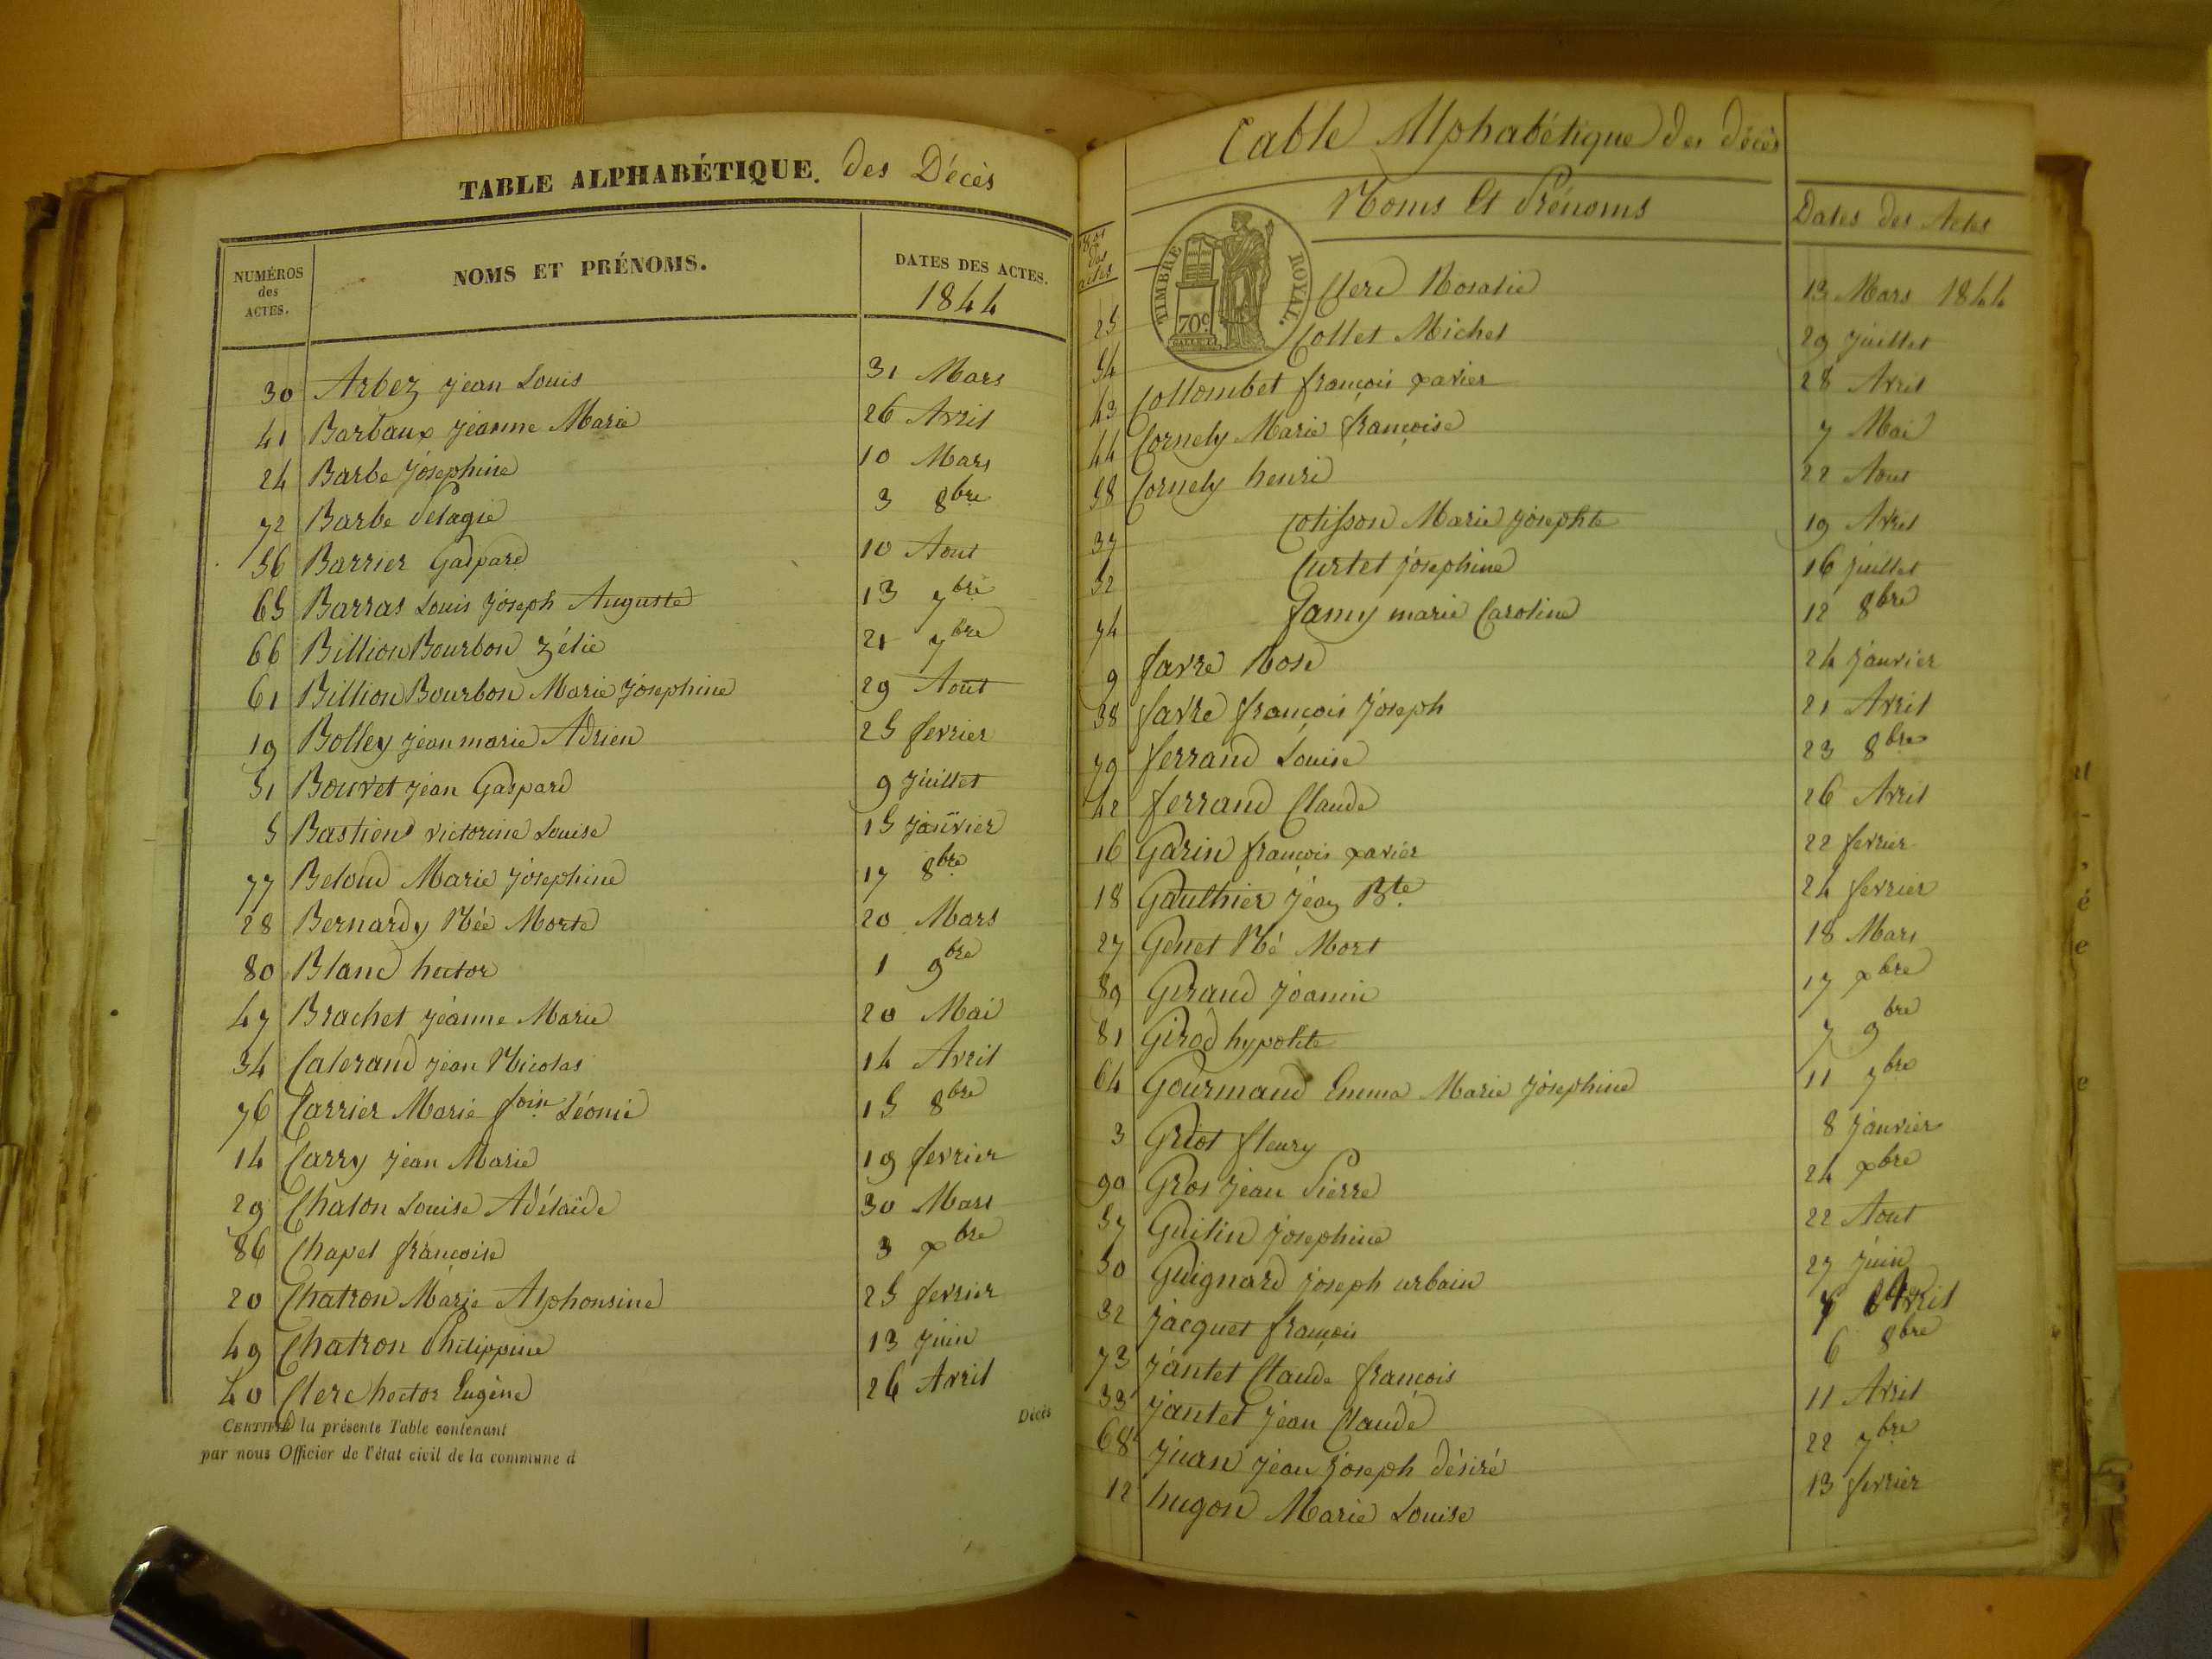 TABLE ALPHABÉTIQUE. des Décès
NUMÉROS des ACTES. NOMS ET PRÉNOMS. DATES DES ACTES.
1844
30 Arbez jean Louis 31 Mars
41 Barbaux jeanne Marie 26 Avril
24 Barbe Josephine 10 Mars
72 Barbe Pelagie 3 8bre
56 Barrier Gaspard 10 Aout
65 Barras Louis Joseph Auguste 13 7bre
66 Billion Bourbon Zélie 21 7bre
61 Billion Bourbon Marie Josephine 29 Aout
19 Bolley jean marie Adrien 25 fevrier
51 Bouvet jean Gaspard 9 juillet
5 Bastien victorine Louise 15 janvier
77 Beloud Marie Josephine 17 8bre
28 Bernardy Née Morte 20 Mars
80 Blanc hector 1 9bre
47 Brachet jeanne Marie 20 Mai
34 Calerand jean Nicolas 14 Avril
76 Carrier Marie foin Léonie 15 8bre
14 Carry jean Marie 19 fevrier
29 Chalon Louise Adélaïde 30 Mars
86 Chapel françoise 3 xbre
20 Chatron Marie Alphonsine 25 fevrier
49 Chatron Philippine 13 juin
40 Clerc hector Eugène 26 Avril
CERTIFIÉ la présente Table contenant
par nous Officier de l'état civil de la commune d
Décès
Table Alphabétique des décès
Nos des actes Noms Et Prénoms Dates des Actes
TIMBRE ROYAL.
70c
25 Clerc Rosalie 13 Mars 1844
54 Collet Michel 29 juillet
43 Collombet françois xavier 28 Avril
44 Cornely Marie françoise 7 Mai
58 Cornely henri 22 Aout
37 Cotisson Marie Josephte 19 Avril
52 Curtet Josephine 16 juillet
74 famy marie Caroline 12 8bre
9 favre Rose 24 janvier
38 favre françois Joseph 21 Avril
79 ferrand Louise 23 8bre
42 ferrand Claude 26 Avril
16 Garin françois xavier 22 fevrier
18 Gaulthier jean Bte 24 fevrier
27 Genet Né Mort 18 Mars
89 Geraud 17 xbre
81 Girod hypolite 7 9bre
64 Gourmand Emma Marie Josephine 11 7bre
3 Griot fleury 8 janvier
90 Gros jean Pierre 24 xbre
57 Guilin Josephine 22 Aout
50 Guignard joseph urbain 27 juin
32 jacquet françois Avril
73 jantet Claude françois 6 8bre
33 jantet jean Claude 11 Avril
68 juan jean Joseph désiré 22 7bre
12 hugon Marie Louise 13 fevrier